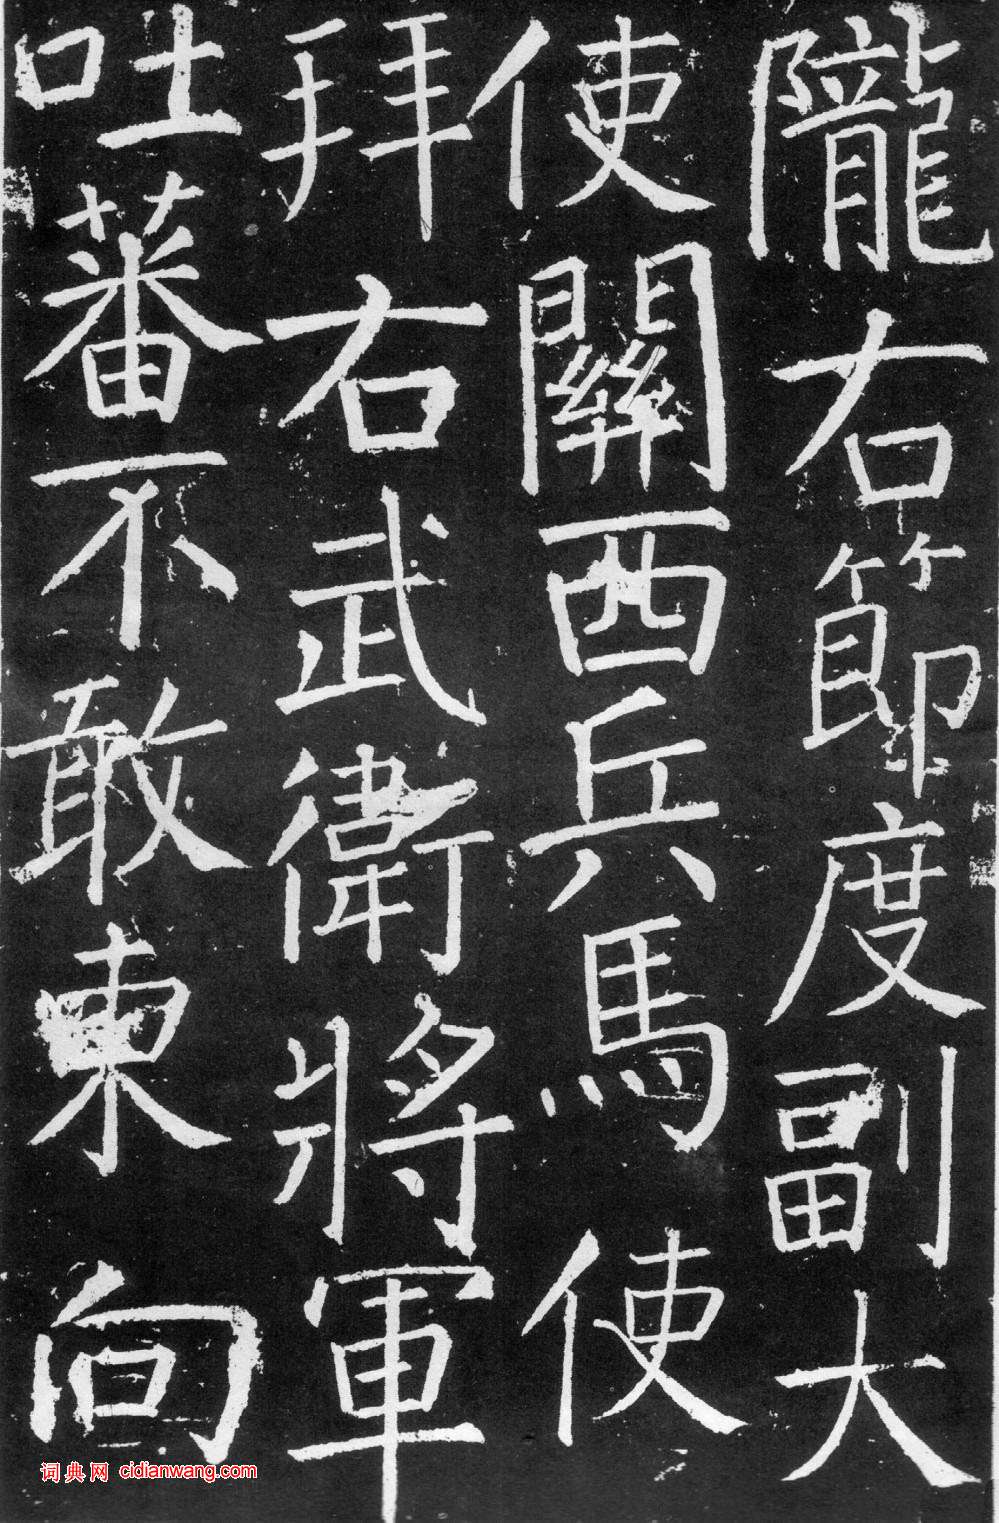 隴右節度副大
使關西兵馬使
拜右武衛將軍
吐蕃不敢東向
词典网 cidianwang.com